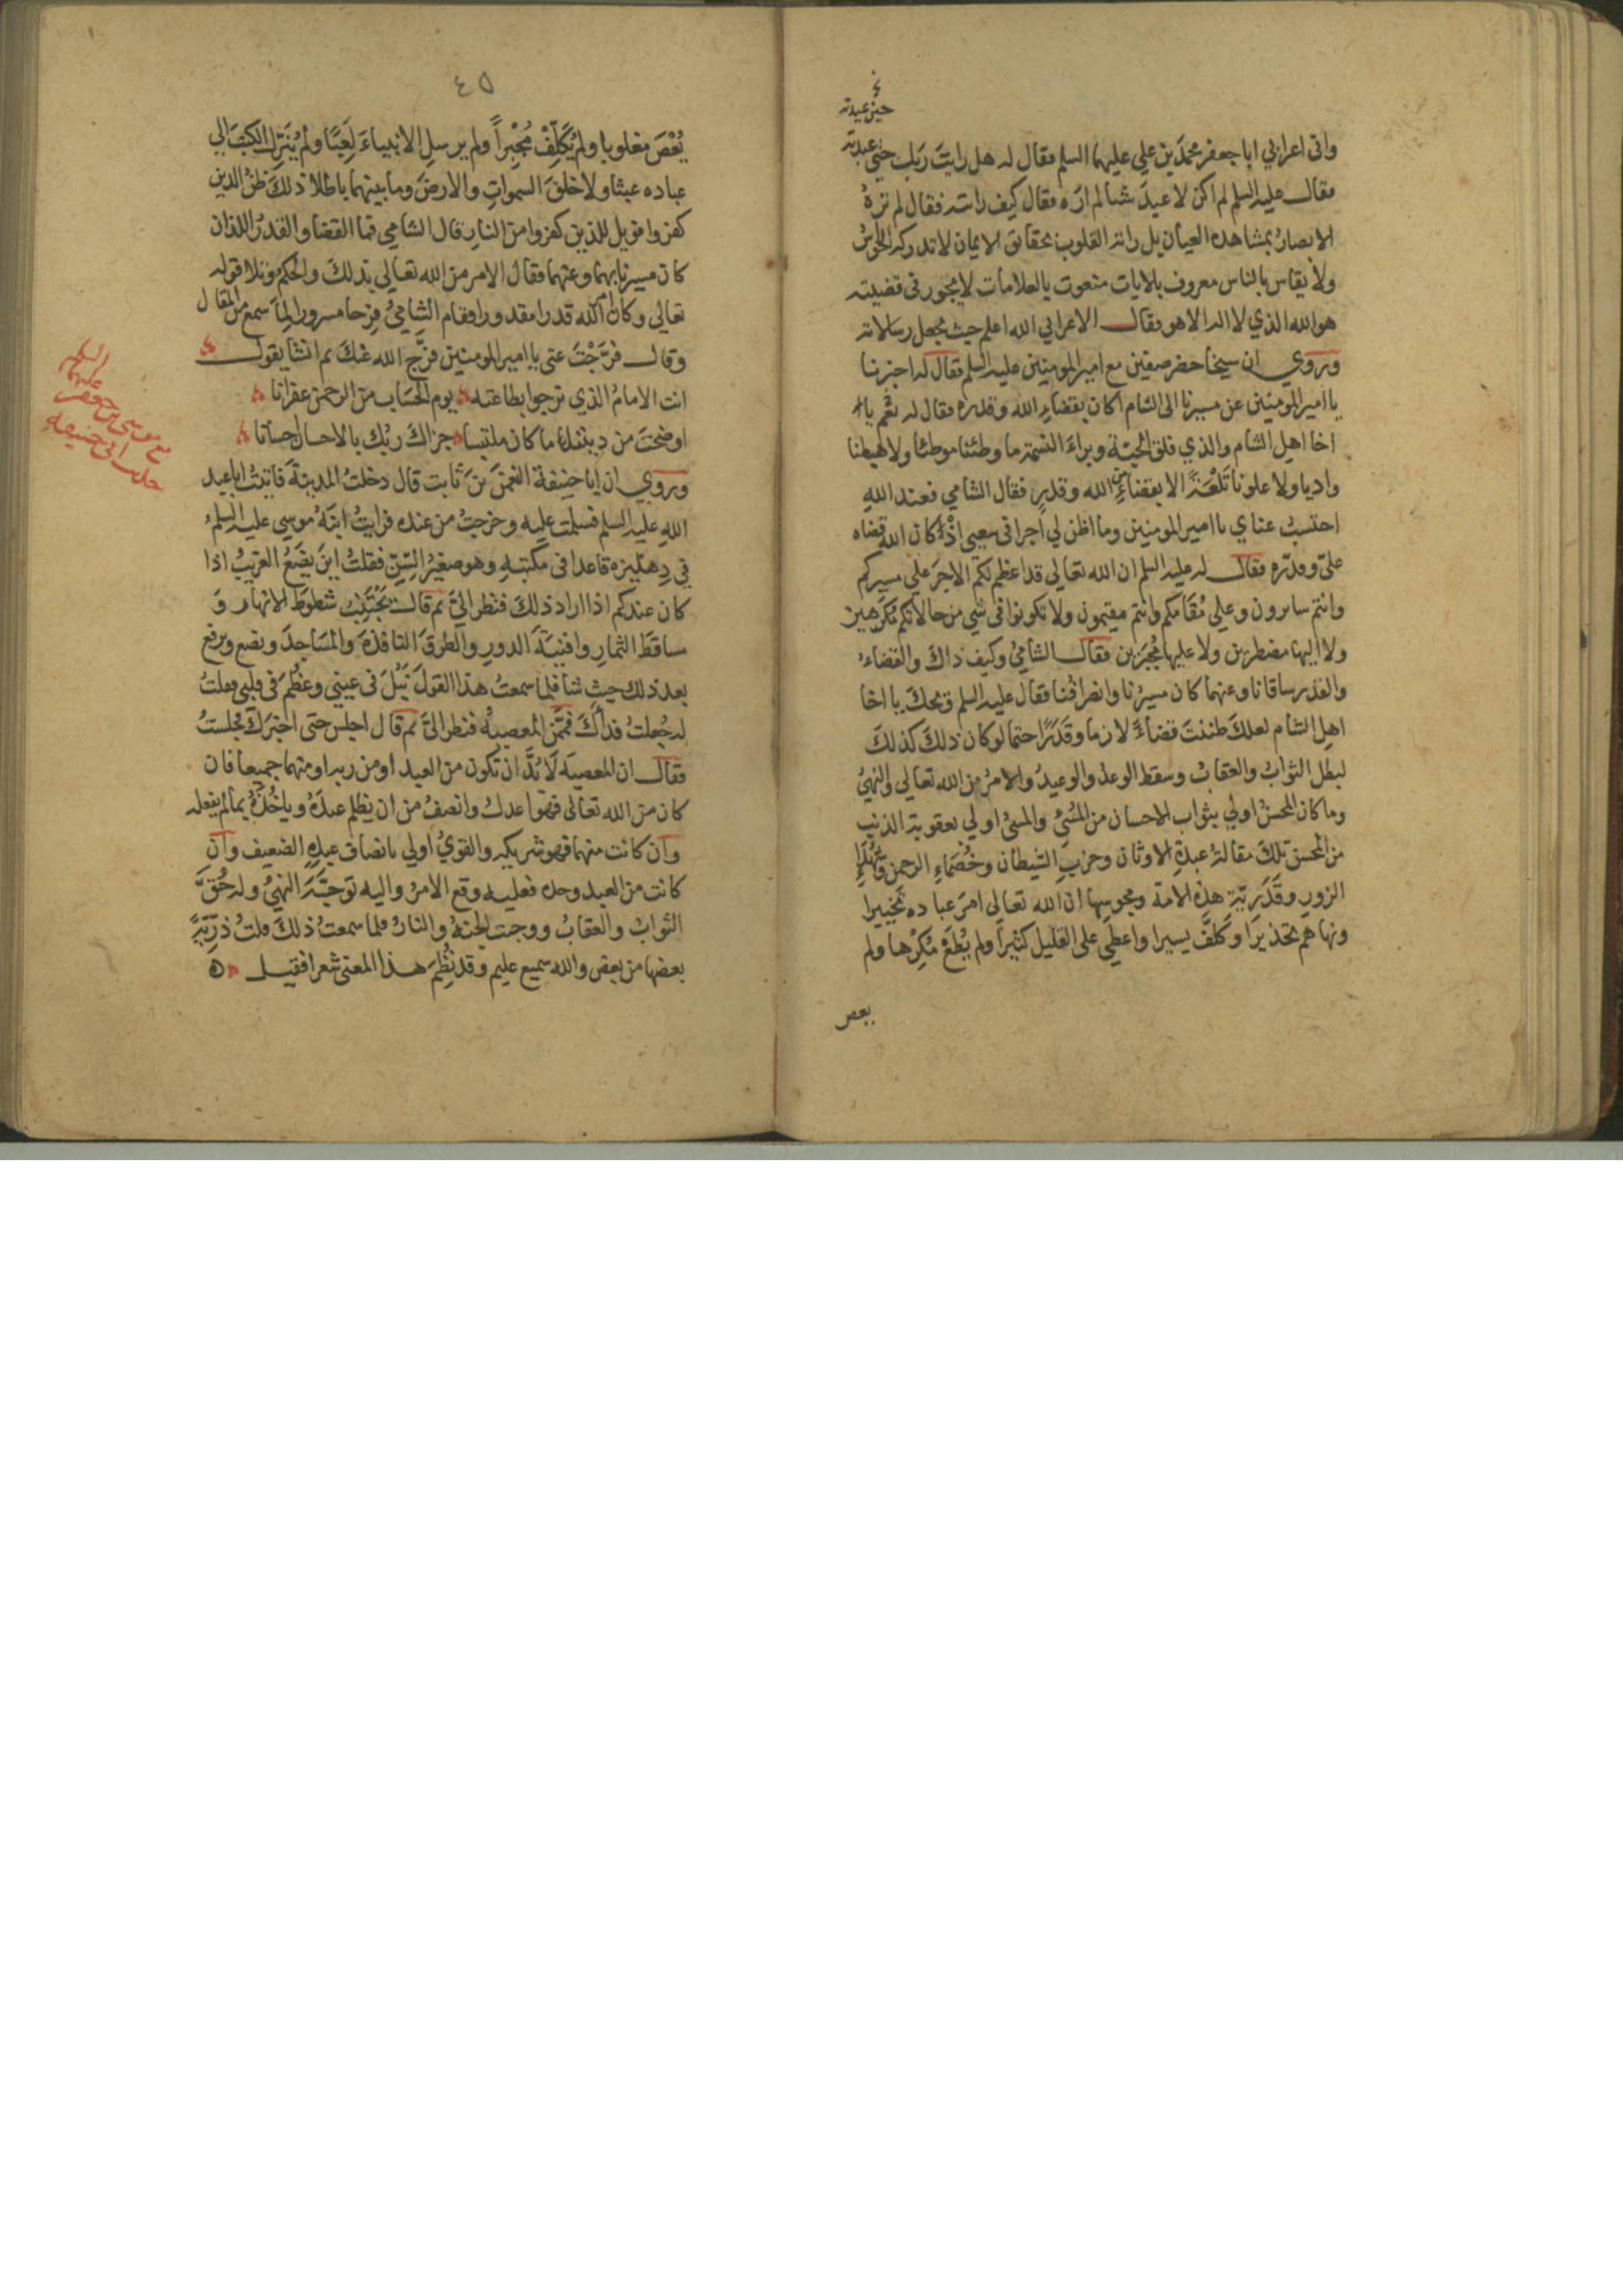 حين عبدته
واتى اعرابي ابا جعفر محمد بن علي عليهما السلم فقال له هل رايت ربك حتى عبدته
فقال عليه السلم لم اكن لاعبد شيا لم اره فقال كيف رايته فقال لم تره
الابصار بمشاهدة العيان بل راته القلوب بحقايق الايمان لا تدركه الحواس
ولا يقاس بالناس معروف بالايات منعوت بالعلامات لا يجور في قضيته
هو الله الذي لا اله الا هو فقال الاعرابي الله اعلم حيث يجعل رسالاته
وروي ان شيخا حضر صفين مع امير المومنين عليه السلم فقال له اخبرنا
يا امير المومنين عن مسيرنا الى الشام اكان بقضاء الله وقدره فقال له نعم يا
اخا اهل الشام والذي فلق الحبة وبراء النسمة ما وطئنا موطئا ولا هبطنا
واديا ولا علونا تلعة الا بقضاء من الله وقدر فقال الشامي فعند الله
احتسب عناي يا امير المومنين وما اظن لي اجرا في سعيي اذ كان الله قضاه
علي وقدره فقال له عليه السلم ان الله تعالي قد اعظم لكم الاجر علي مسيركم
وانتم سايرون وعلي مقامكم وانتم مقيمون ولا تكونوا في شي من حالاتكم مكرهين
ولا اليها مضطرين ولا عليها مجبرين فقال الشامي وكيف ذاك والقضاء
والقدر ساقانا وعنهما كان مسيرنا وانصرافنا فقال عليه السلم ويحك يا اخا
اهل الشام لعلك ظننت قضاء لازما وقدرا حتما لو كان ذلك كذلك
لبطل الثواب والعقاب وسقط الوعد والوعيد والامر من الله تعالي والنهي
وما كان المحسن اولي بثواب الاحسان من المسيء والمسيء اولي بعقوبة الذنب
من المحسن تلك مقالة عبدة الاوثان وحزب الشيطان وخصماء الرحمن وشهداء
الزور وقدرية هذه الامة ومجوسها ان الله تعالي امر عباده تخييرا
ونهاهم تحذيرا وكلف يسيرا واعطي على القليل كثيرا ولم يطع مكرها ولم
يعص
٤٥
يعص مغلوبا ولم يكلف مجبرا ولم يرسل الانبياء لعبا ولم ينزل الكتب الي
عباده عبثا ولا خلق السموات والارض وما بينهما باطلا ذلك ظن الذين
كفروا فويل للذين كفروا من النار قال الشامي فما القضا والقدر اللذان
كان مسيرنا بهما وعنهما فقال الامر من الله تعالي بذلك والحكم وتلا قوله
تعالي وكان امر الله قدرا مقدورا فقام الشامي فرحا مسرورا لما سمع من المقال
وقال فرجت عني يا امير المومنين فرج الله عنك ثم انشا يقول
انت الامام الذي نرجوا بطاعته يوم الحساب من الرحمن غفرانا
اوضحت من ديننا ما كان ملتبسا جزاك ربك بالاحسان احسانا
وروي ان ابا حنيفة النعمن بن ثابت قال دخلت المدينة فاتيت ابا عبد
الله عليه السلم فسلمت عليه وخرجت من عنده فرايت ابنه موسي عليه السلم
في دهليزه قاعدا في مكتبه وهو صغير السن فقلت اين يضع الغريب اذا
كان عندكم اذا اراد ذلك فنظر الي ثم قال يجتنب شطوط الانهار و
ساقط الثمار وافنية الدور والطرق النافذة والمساجد ويضع ويرفع
بعد ذلك حيث شا فلما سمعت هذا القول نبل في عيني وعظم في قلبي فقلت
له جعلت فداك فممن المعصية فنظر الي ثم قال اجلس حتى اخبرك فجلست
فقال ان المعصية لا بد ان تكون من العبد او من ربه او منهما جميعا فان
كان من الله تعالى فهو اعدل وانصف من ان يظلم عبده وياخذه بما لم يفعله
وان كانت منهما فهو شريكه والقوي اولي بانصاف عبده الضعيف وان
كانت من العبد وحده فعليه وقع الامر واليه توجه النهي وله حق
الثواب والعقاب ووجبت الجنة والنار فلما سمعت ذلك قلت ذرية
بعضها من بعض والله سميع عليم وقد نظم هذا المعنى شعرا فقيل
السلم
عليهما
مع موسى بن جعفر
ابي حنيفه